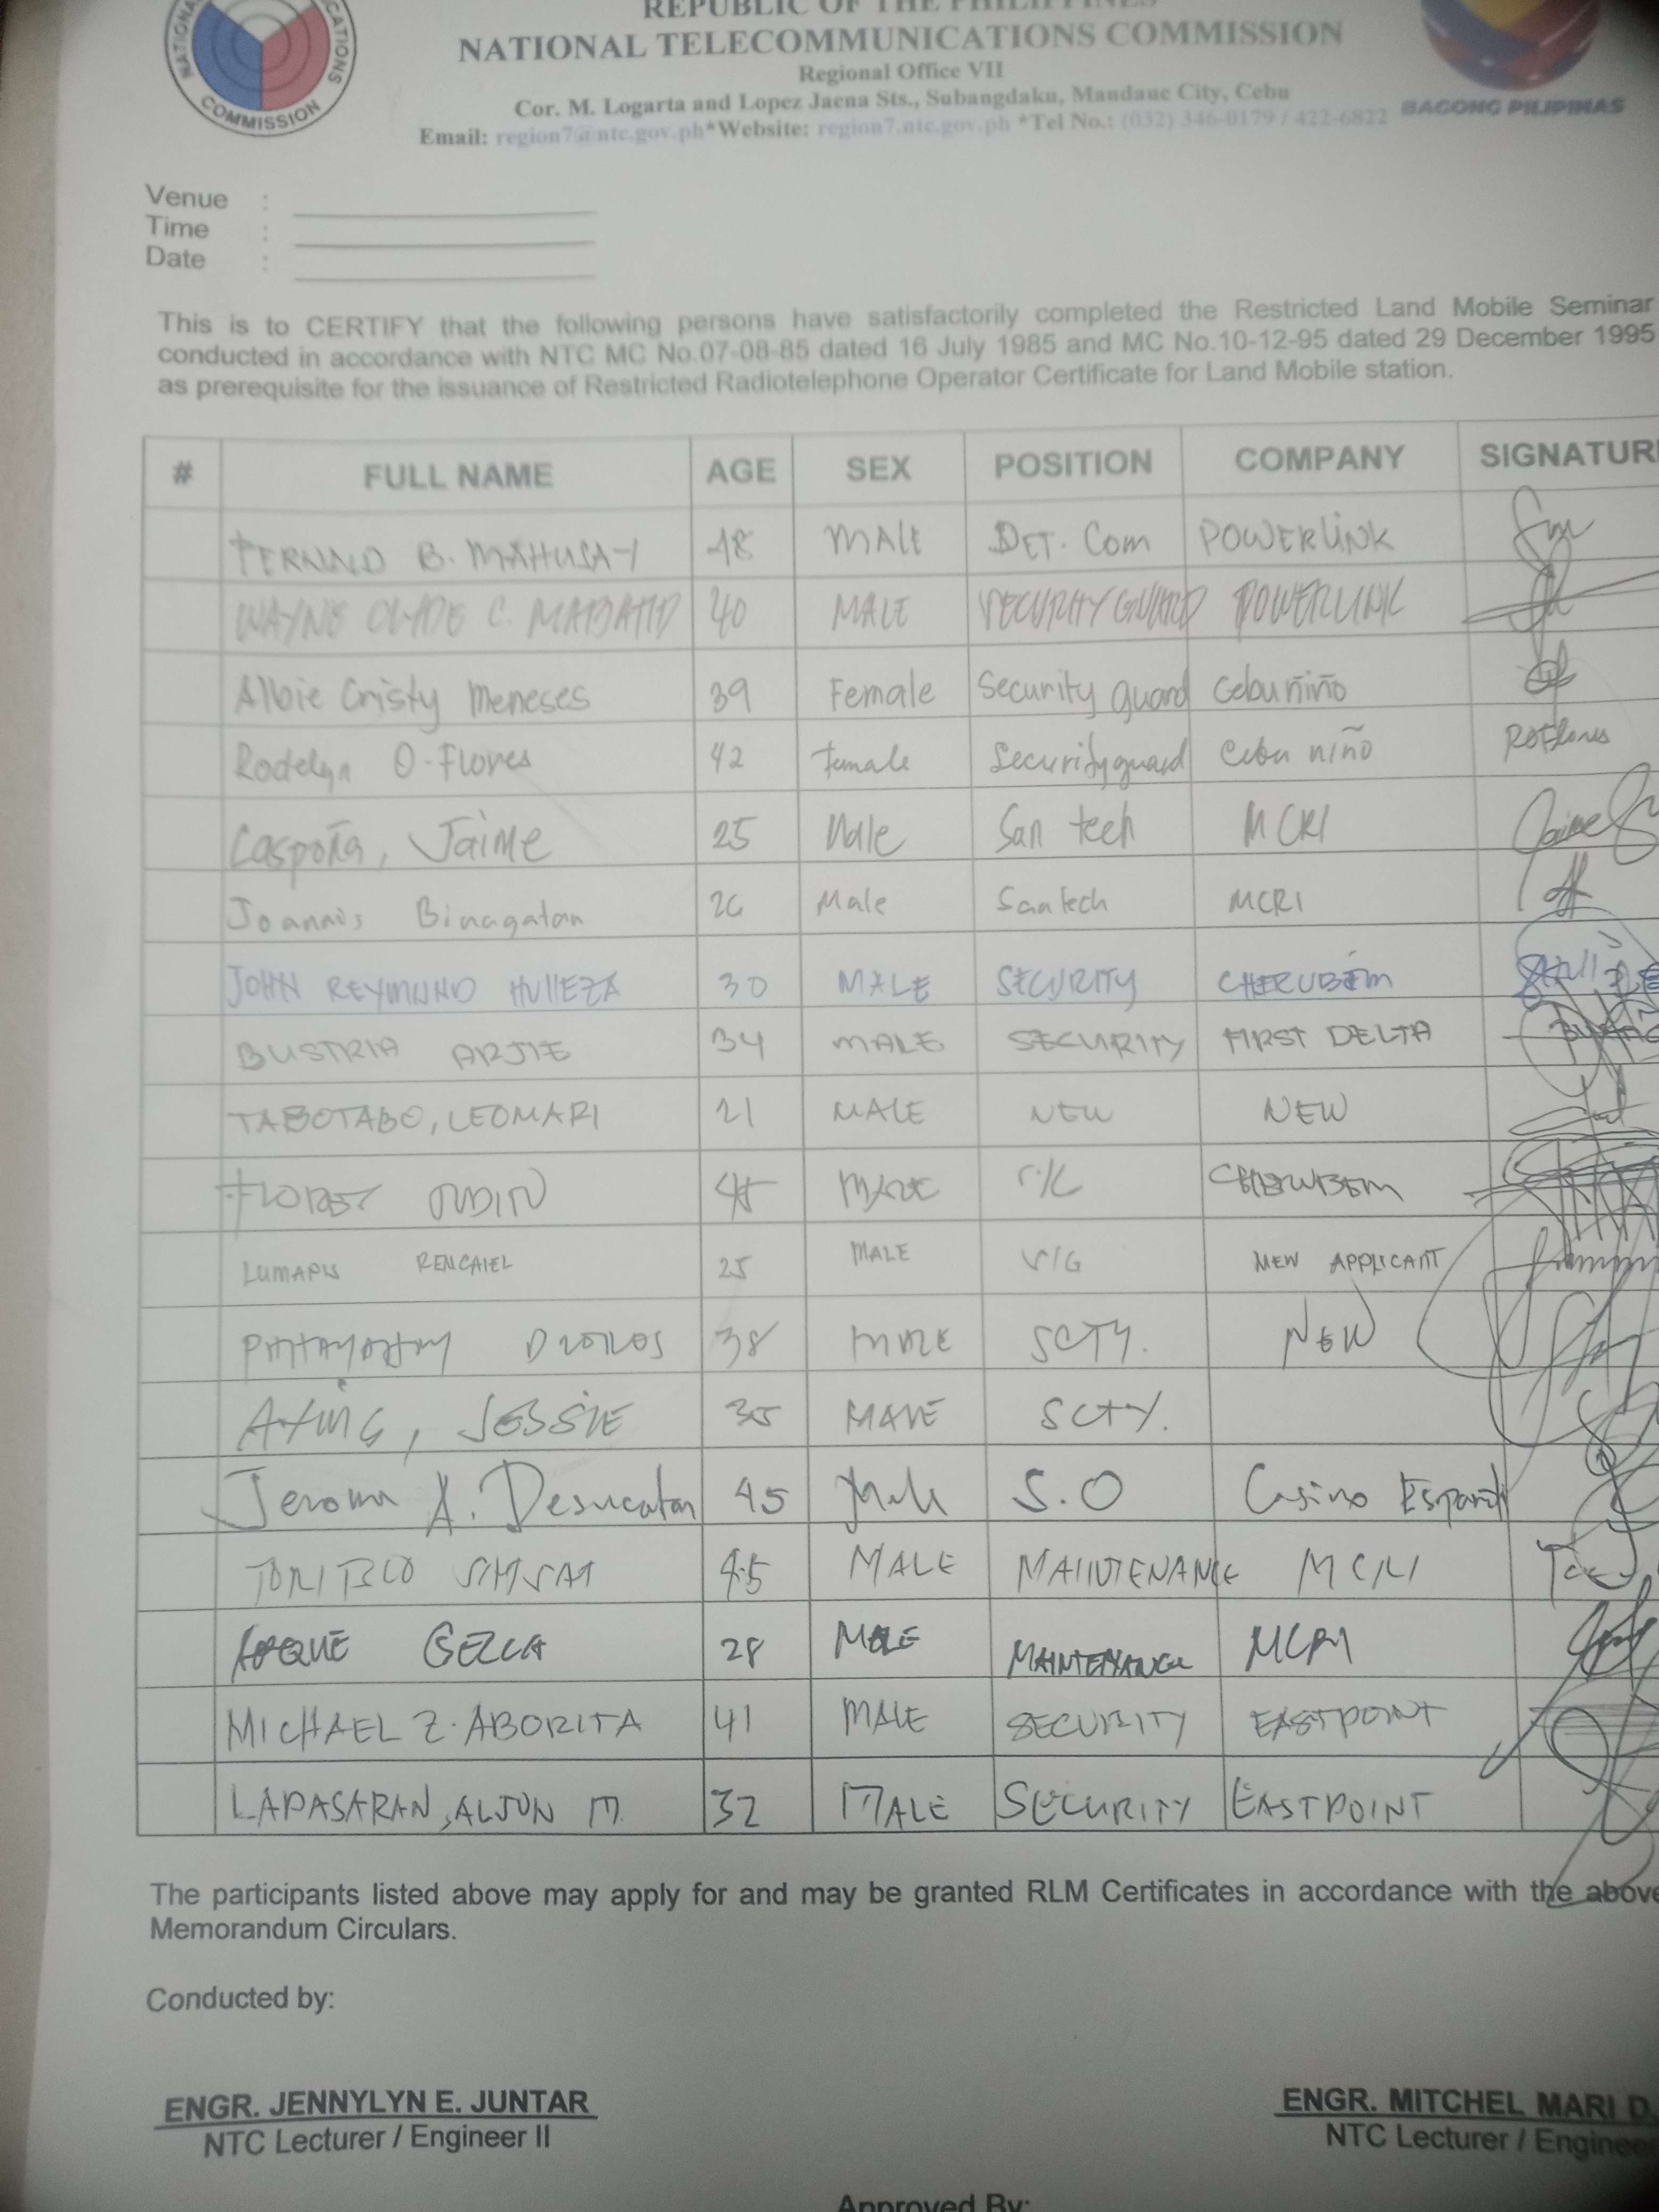 REPUBLIC OF THE PHILIPPINES
NATIONAL TELECOMMUNICATIONS COMMISSION
Regional Office VII
Cor. M. Logarta and Lopez Jaena Sts., Subangdaku, Mandaue City, Cebu
Email: region7@ntc.gov.ph*Website: region7.ntc.gov.ph *Tel No.: (032) 346-0179 / 422-6822
COMMISSION
BAGONG PILIPINAS
Venue :
Time :
Date :
This is to CERTIFY that the following persons have satisfactorily completed the Restricted Land Mobile Seminar
conducted in accordance with NTC MC No.07-08-85 dated 16 July 1985 and MC No.10-12-95 dated 29 December 1995
as prerequisite for the issuance of Restricted Radiotelephone Operator Certificate for Land Mobile station.
# FULL NAME AGE SEX POSITION COMPANY SIGNATUR
B. MAHUSAY 48 MALE DET. Com POWERLINK
WAYNE C. 40 MALE SECURITY GUARD POWERLINK
Albie Cristy Meneses 39 Female Security guard Cebu niño
Rodelyn O. Flores 42 Female Security guard Cebu niño
Caspoña, Jaime 25 Male San tech MCRI
Binagatan 26 Male San tech MCRI
JOHN REYMUND 30 MALE SECURITY CHERUBIM
BUSTRIA ARJIE 34 MALE SECURITY FIRST DELTA
TABOTABO, LEOMARI 21 MALE NEW NEW
MALE CHERUBIM
LUMAPIS 25 MALE S/G NEW APPLICANT
38 MALE SCTY. NEW
AYING, JESSIE 35 MALE SCTY.
Jerome A. Desucatan 45 Male S.O Casino Español
TORIBIO 45 MALE MAINTENANCE MCRI
28 MALE MAINTENANCE MCRI
MICHAEL Z. ABORITA 41 MALE SECURITY EASTPOINT
LAPASARAN, ALJUN M. 32 MALE SECURITY EASTPOINT
The participants listed above may apply for and may be granted RLM Certificates in accordance with the above
Memorandum Circulars.
Conducted by:
ENGR. JENNYLYN E. JUNTAR ENGR. MITCHEL MARI D.
NTC Lecturer / Engineer II NTC Lecturer / Engineer
Approved By: